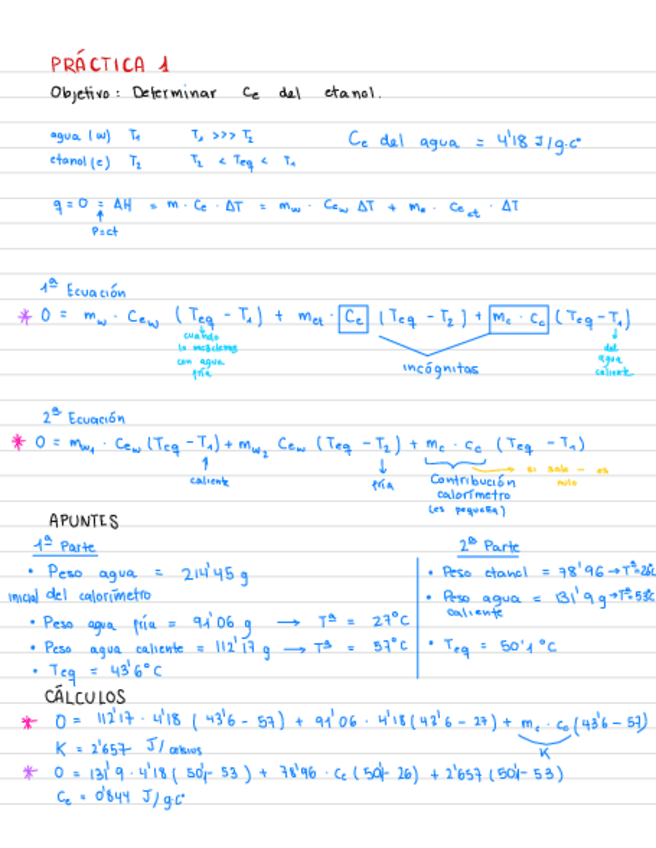 PRÁCTICA 1
Objetivo: Determinar Ce del etanol.
agua (w) T₁ T₁ >>> T₂ Ce del agua = 4'18 J/g·Cº
etanol (e) T₂ T₂ < Teq < T₁
q = 0 = ΔH = m · Ce · ΔT = mw · Cew ΔT + me · Ce et · ΔT
P=ct
1ª Ecuación
* 0 = mw · Cew (Teq - T₁) + met · Ce (Teq - T₂) + mc · Cc (Teq - T₁)
cuando lo mezclamos con agua fría
incógnitas
del agua caliente
2ª Ecuación
* 0 = mw₁ · Cew (Teq - T₁) + mw₂ Cew (Teq - T₂) + mc · cc (Teq - T₁)
caliente
fría
Contribución calorímetro (es pequeña)
si sale - es nulo
APUNTES
1ª Parte
• Peso agua = 214'45 g
inicial del calorímetro
• Peso agua fría = 91'06 g → Tª = 27°C
• Peso agua caliente = 112'17 g → Tª = 57°C
• Teq = 43'6°C
2ª Parte
• Peso etanol = 78'96 → Tª=26
• Peso agua = 131'9 g → Tª=53°C
caliente
• Teq = 50'1 °C
CÁLCULOS
* 0 = 112'17 · 4'18 (43'6 - 57) + 91'06 · 4'18 (43'6 - 27) + mc · cc (43'6 - 57)
K
K = 2'657 J/celsius
* 0 = 131'9 · 4'18 (50'1 - 53) + 78'96 · Ce (50'1 - 26) + 2'657 (50'1 - 53)
Ce = 0'844 J/g·Cº